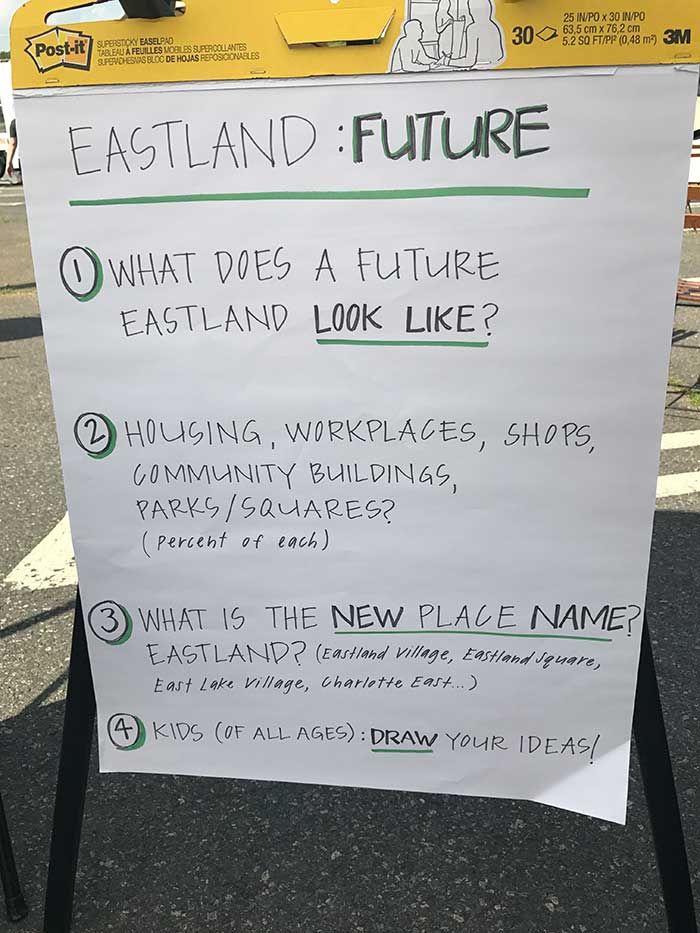 Post-it
SUPERSTICKY EASEL PAD
TABLEAU À FEUILLES MOBILES SUPERCOLLANTES
SUPERADHESIVAS BLOC DE HOJAS REPOSICIONABLES
30
25 IN/PO x 30 IN/PO
63,5 cm x 76,2 cm
5.2 SQ FT/PI² (0,48 m²)
3M
EASTLAND : FUTURE
1 WHAT DOES A FUTURE
EASTLAND LOOK LIKE?
2 HOUSING, WORKPLACES, SHOPS,
COMMUNITY BUILDINGS,
PARKS/SQUARES?
(percent of each)
3 WHAT IS THE NEW PLACE NAME?
EASTLAND? (Eastland Village, Eastland Square,
East Lake Village, Charlotte East...)
4 KIDS (OF ALL AGES): DRAW YOUR IDEAS!